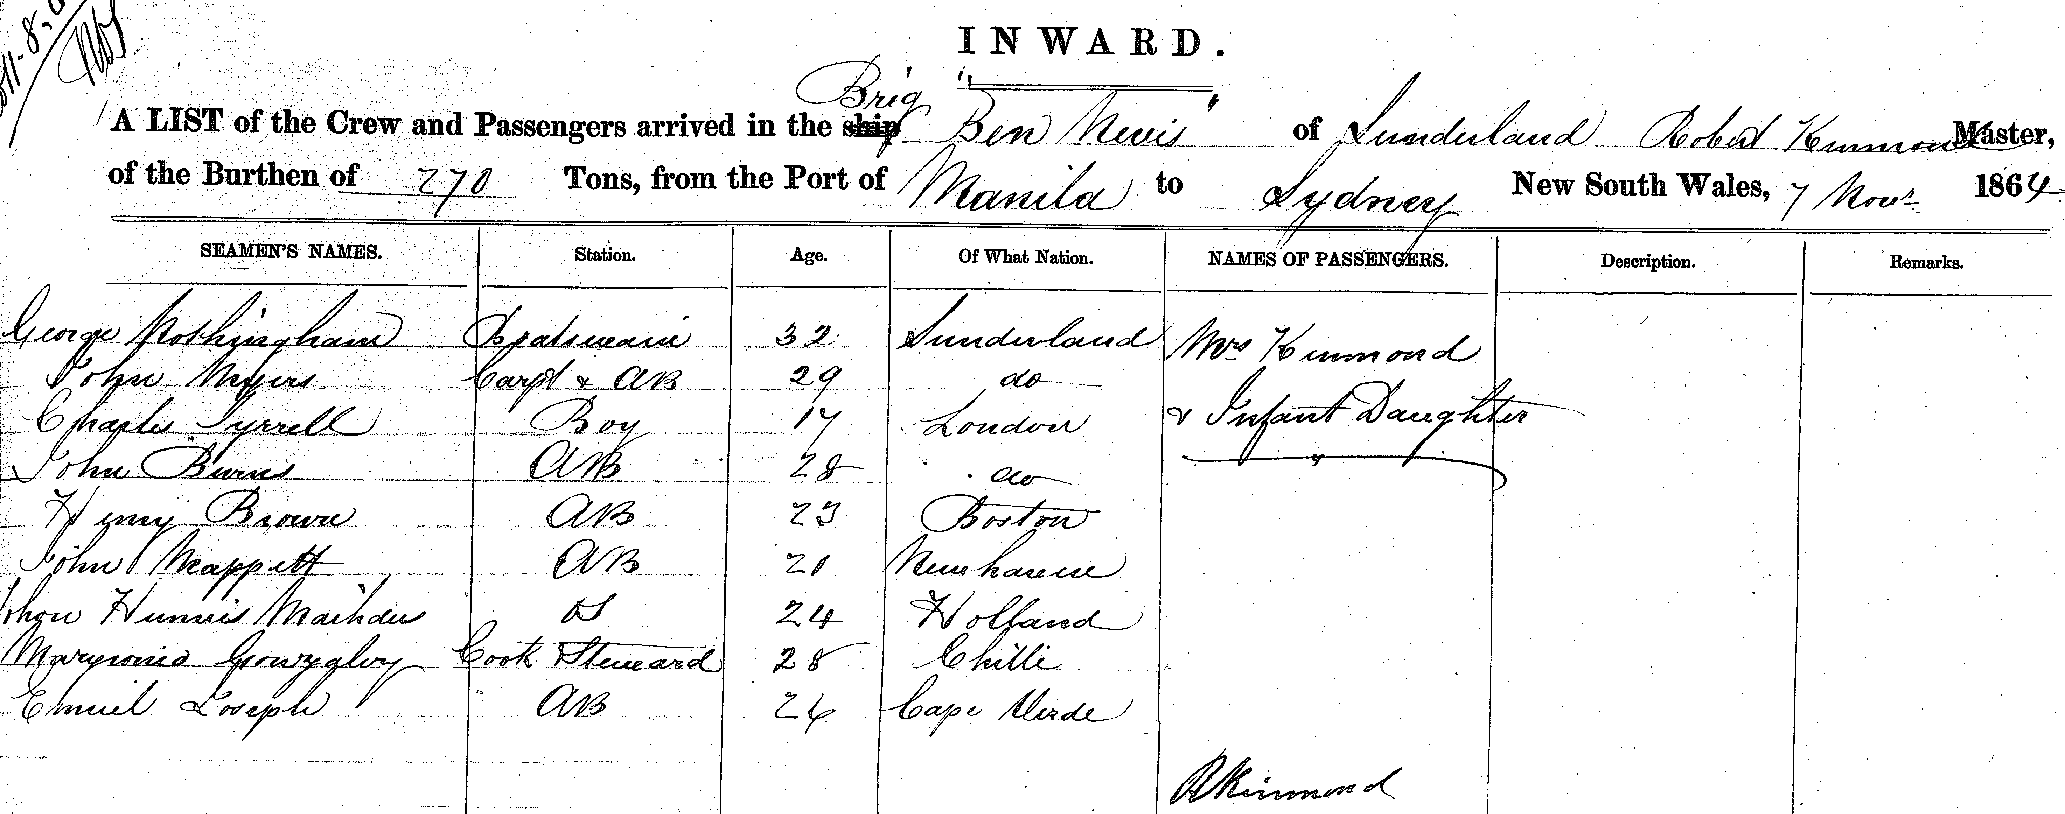 INWARD.
A LIST of the Crew and Passengers arrived in the ship Brig "Ben Nevis" of Sunderland Robert Kinmond Master,
of the Burthen of 270 Tons, from the Port of Manila to Sydney New South Wales, 7 Novr 1864
SEAMEN'S NAMES. Station. Age. Of What Nation. NAMES OF PASSENGERS. Description. Remarks.
George Nothingham Boatswain 32 Sunderland Mrs Kinmond
John Myers Carpt & AB 29 do
Charles Tyrrell Boy 17 London & Infant Daughter
John Burns AB 28 do
Henry Brown AB 23 Boston
John Mappett AB 21 Newhaven
OS 24 Holland
Cook Steward 28 Chilli
Emuil Joseph AB 24 Cape Verde
R Kinmond